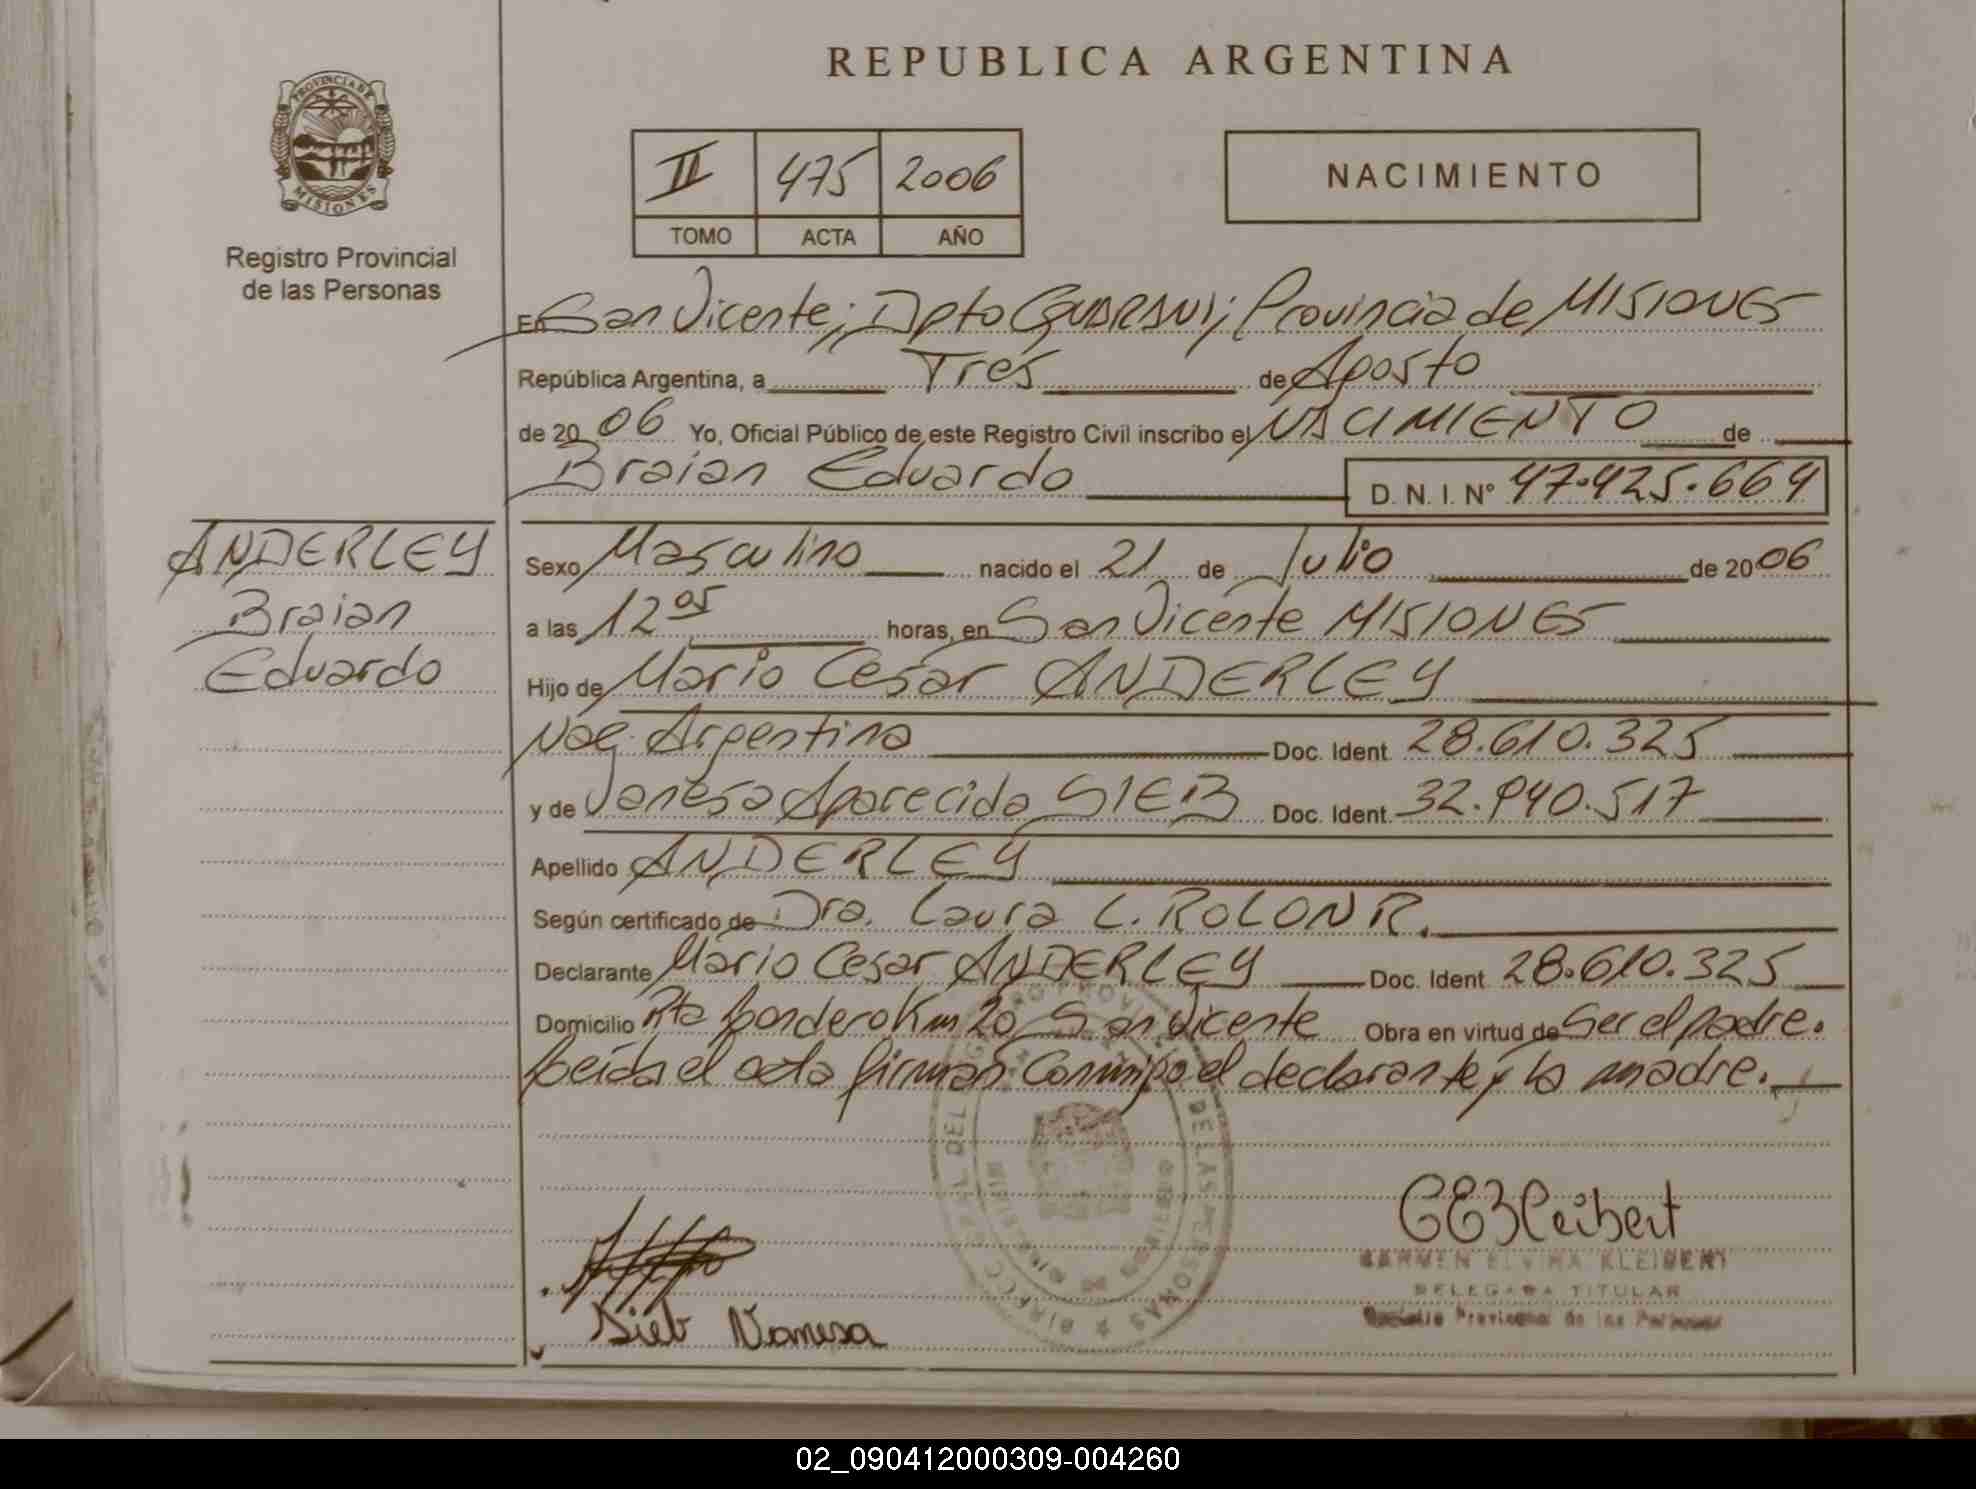 REPUBLICA ARGENTINA
PROVINCIA DE
MISIONES
Registro Provincial
de las Personas
II 475 2006
TOMO ACTA AÑO
NACIMIENTO
En San Vicente; Dpto GUARANI; Provincia de MISIONES
República Argentina, a Tres de Agosto
de 2006 Yo, Oficial Público de este Registro Civil inscribo el NACIMIENTO de
Braian Eduardo D. N. I. N° 47.425.664
ANDERLEY
Braian
Eduardo
Sexo Masculino nacido el 21 de Julio de 2006
a las 12 05 horas, en San Vicente MISIONES
Hijo de Mario Cesar ANDERLEY
Nac. Argentina Doc. Ident. 28.610.325
y de Vanesa Aparecida SIEB Doc. Ident. 32.940.517
Apellido ANDERLEY
Según certificado de Dra. Laura L. ROLON R.
Declarante Mario Cesar ANDERLEY Doc. Ident. 28.610.325
Domicilio Rta Bordero Km 20 San Vicente Obra en virtud de Ser el padre.
Leída el acta firman Conmigo el declarante y la madre.
DE LAS PERSONAS
Sieb Vanesa
CEKleibert
CARMEN ELVIRA KLEIBERT
DELEGADA TITULAR
Registro Provincial de las Personas
02_090412000309-004260